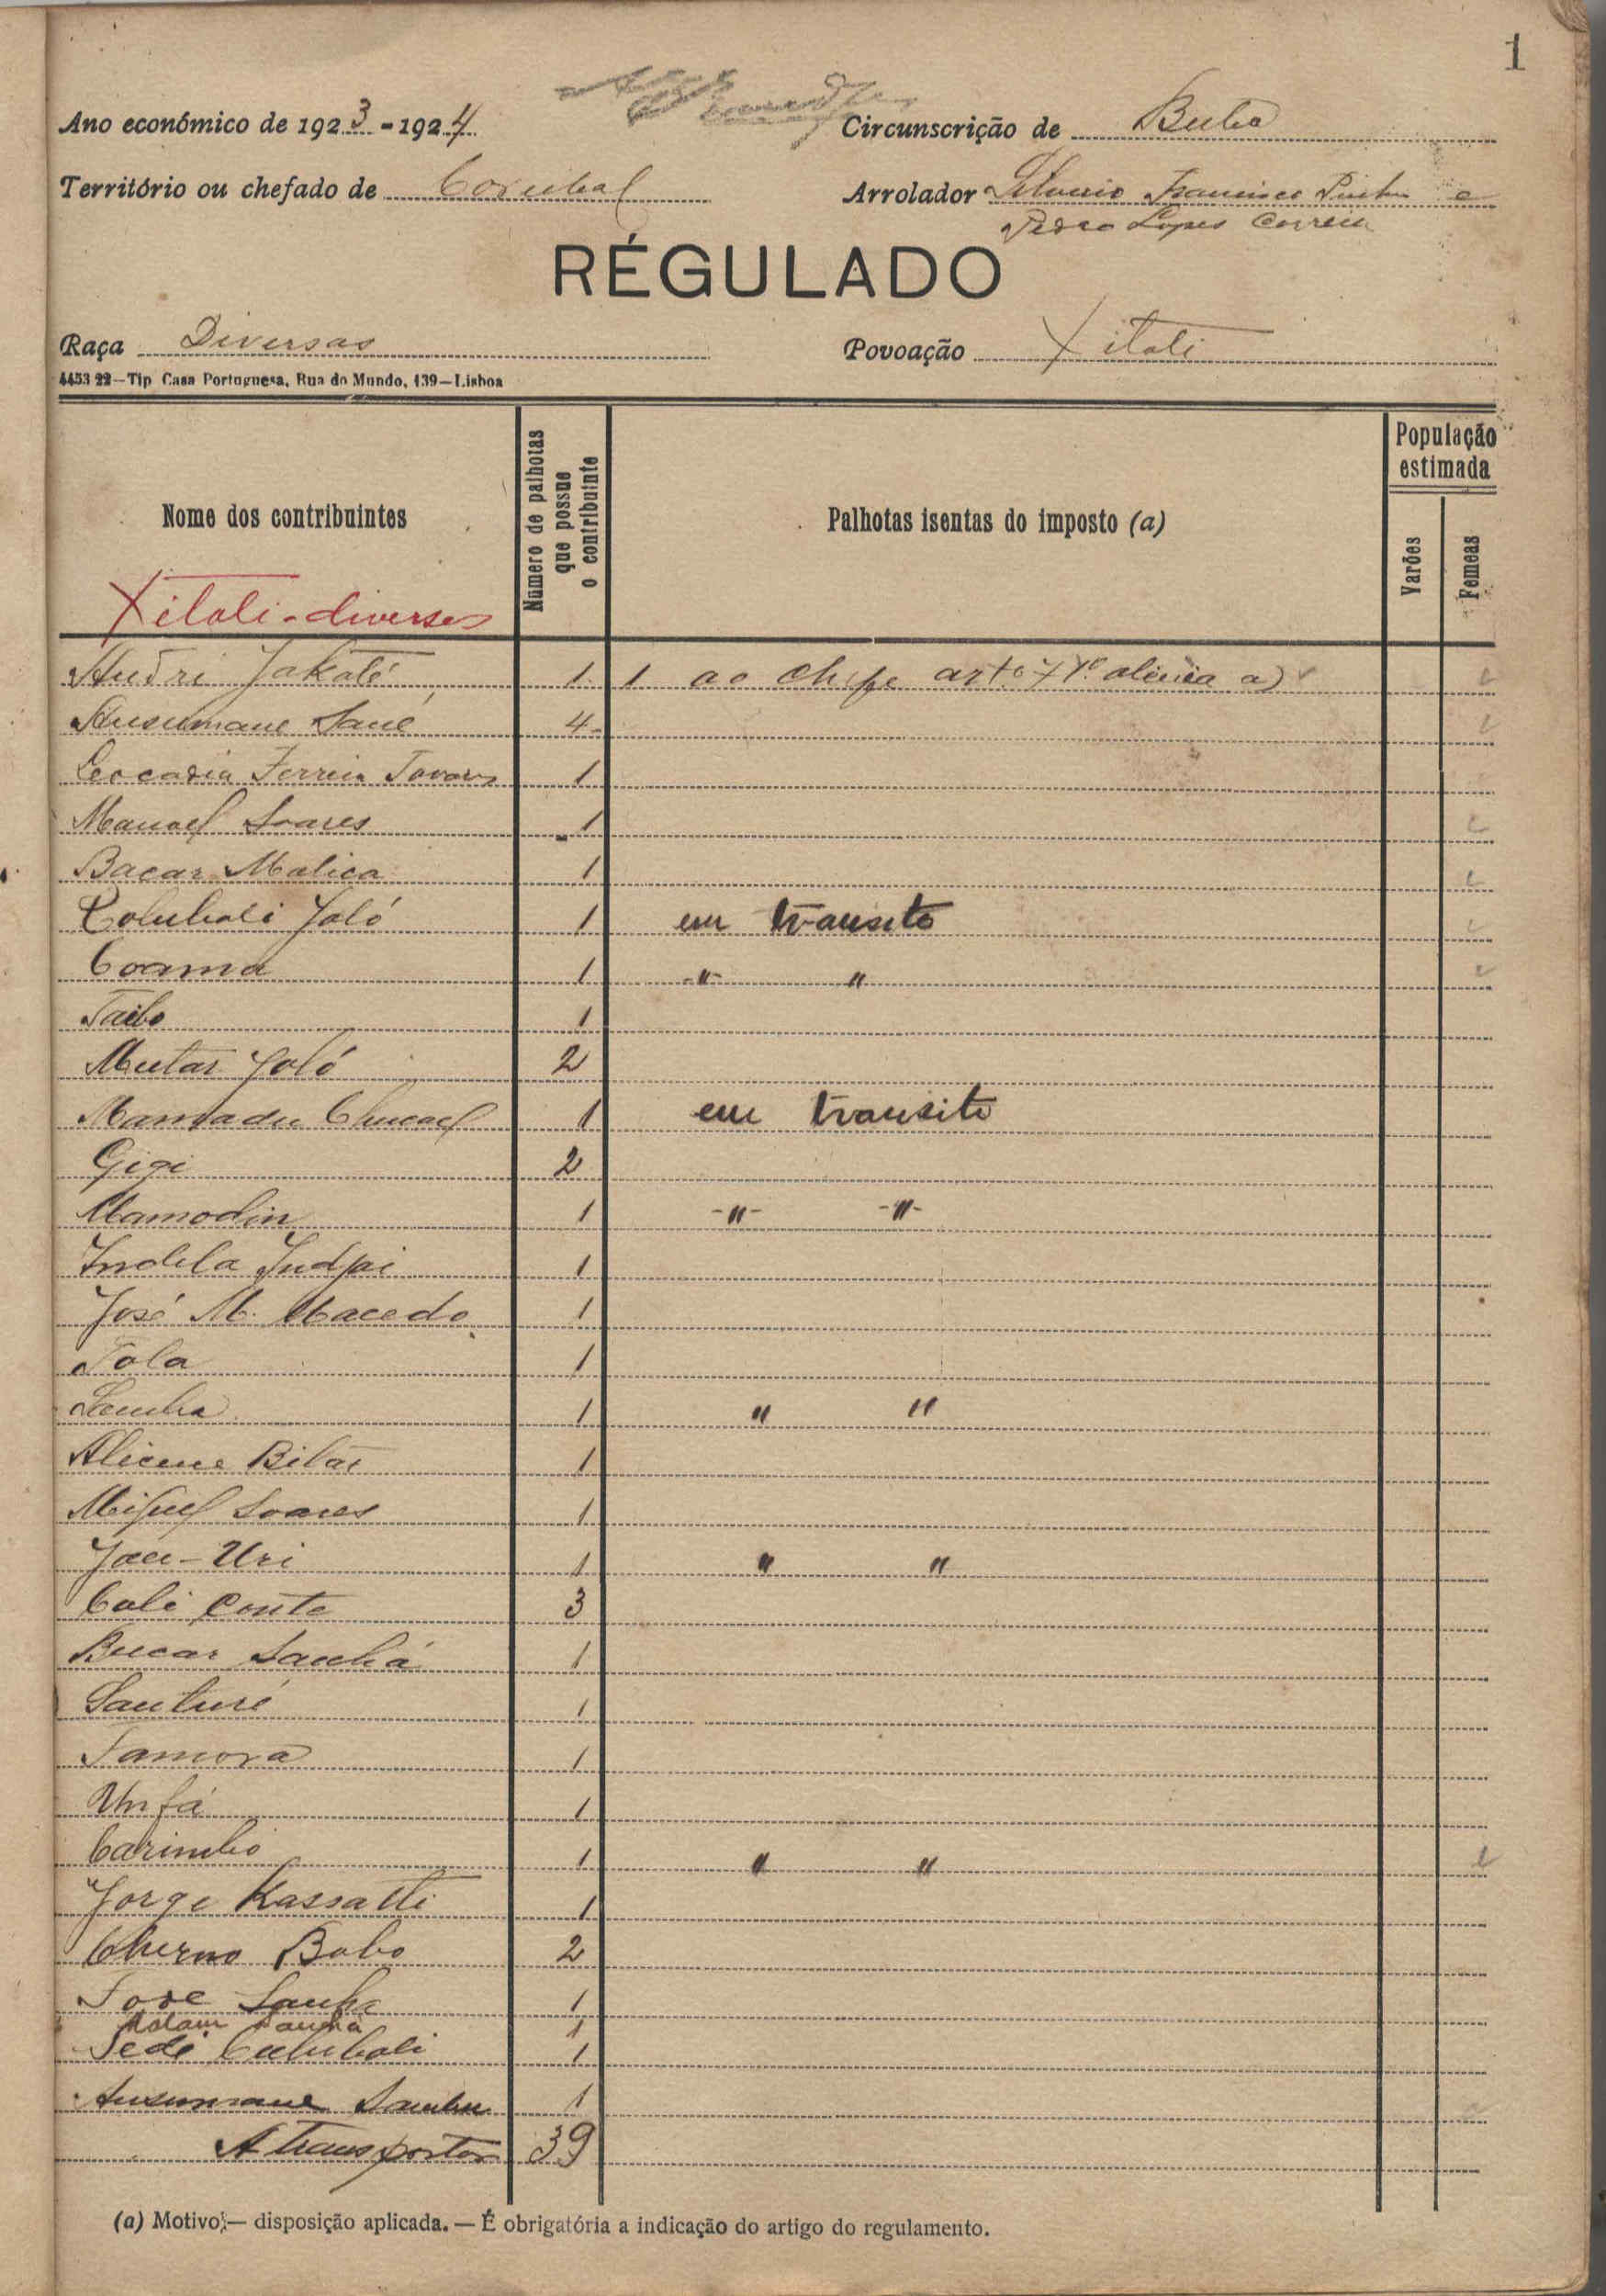 1
Ano económico de 1923-1924
Circunscrição de Buba
Território ou chefado de Corubal
Arrolador Francisco e
Pedro Lopes Correia
RÉGULADO
Raça Diversas
Povoação Xitoli
4453 22—Tip Casa Portuguesa, Rua do Mundo, 139—Lisboa
Nome dos contribuintes
Número de palhotas que possue o contribuinte
Palhotas isentas do imposto (a)
População estimada
Varões
Femeas
Xitoli-diversos
1 1 ao chefe artº 71º alinea a)
Ansumane Sané 4
Leocadia Ferreira Tavares 1
Manoel Soares 1
Bacar Malica 1
Colubali Jaló 1 em transito
Coama 1 -"- "
Taibo 1
Mutar Jaló 2
Mamadu 1 em transito
Gigi 2
Mamodin 1 -"- -"-
1
José M. Macedo 1
Tola 1
Samba 1 " "
Bilar 1
Miguel Soares 1
Jau-Uri 1 " "
Cali Conte 3
Bucar Sanhá 1
Santuré 1
Tamora 1
Unfá 1
Carimbo 1 " "
Jorge Kassatti 1
Cherno Bobo 2
Sanha 1
Malam Sanhá 1
Sedi Culubali 1
Ansumane Sambu 1
A transportar 39
(a) Motivo;— disposição aplicada. — É obrigatória a indicação do artigo do regulamento.